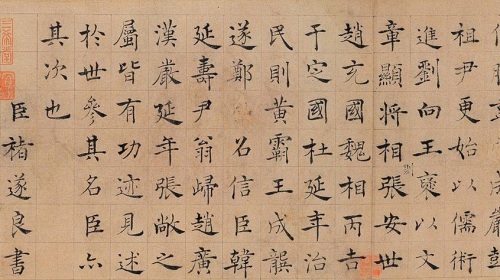 祖尹更始以儒術
進劉向王褒以文
章顯將相張安世
趙充國魏相丙吉
于定國杜延年治
民則黃霸王成龔
遂鄭 名信臣韓
延壽尹翁歸趙廣
漢嚴延年張敞之
屬皆有功迹見述
於世參其名臣亦
其次也
臣褚遂良書